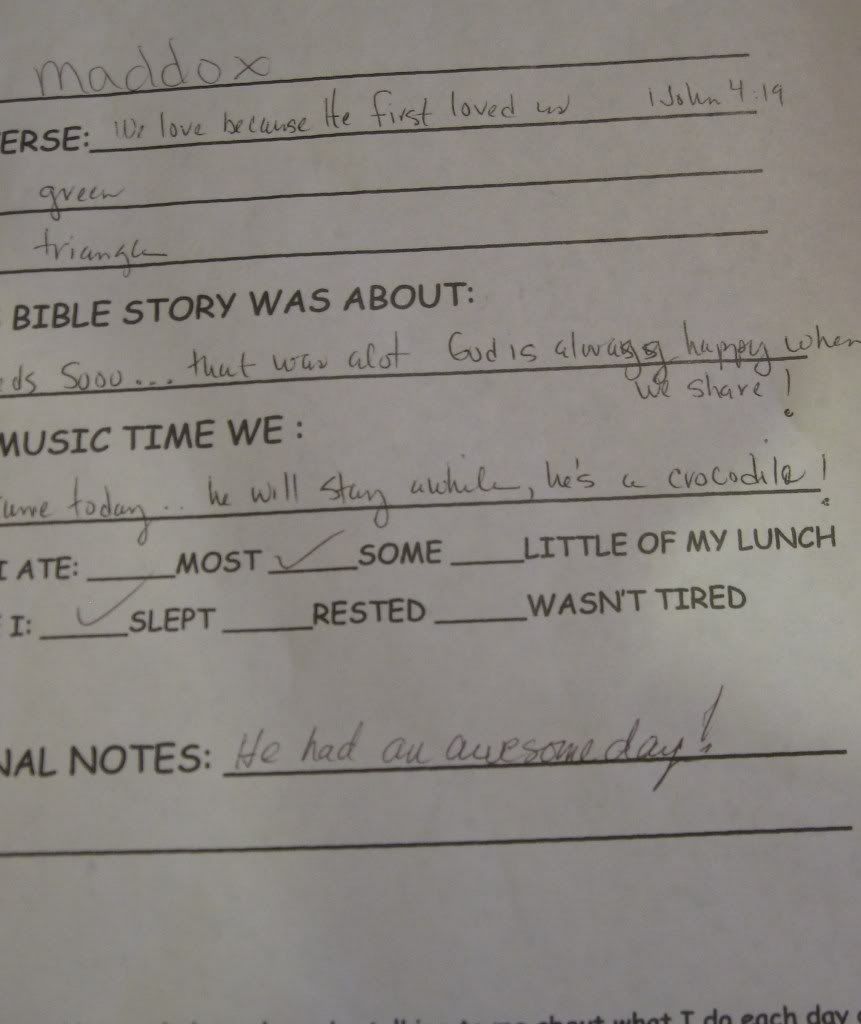 maddox
ERSE: We love because He first loved us 1 John 4:19
green
triangle
BIBLE STORY WAS ABOUT:
ds Sooo... that was alot God is always happy when
we share!
MUSIC TIME WE :
today.. he will stay awhile, he's a crocodile!
I ATE: ____MOST ✓SOME ____LITTLE OF MY LUNCH
I: ✓SLEPT ____RESTED ____WASN'T TIRED
NAL NOTES: He had an awesome day!
what I do each day